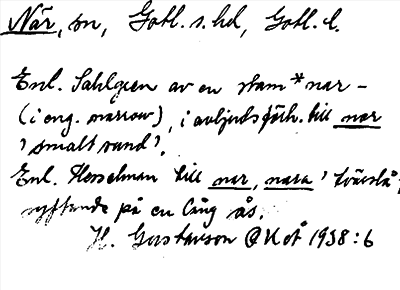 När, sn, Gotl. s. hd, Gotl. l.
Enl. Sahlgren av en stam *nar-
(i eng. narrow), i avljudsförh. till nor
'smalt sund'.
Enl. Hesselman till nar, nara 'tvärslå',
syftande på en lång ås.
H. Gustavson OUoÅ 1938:6